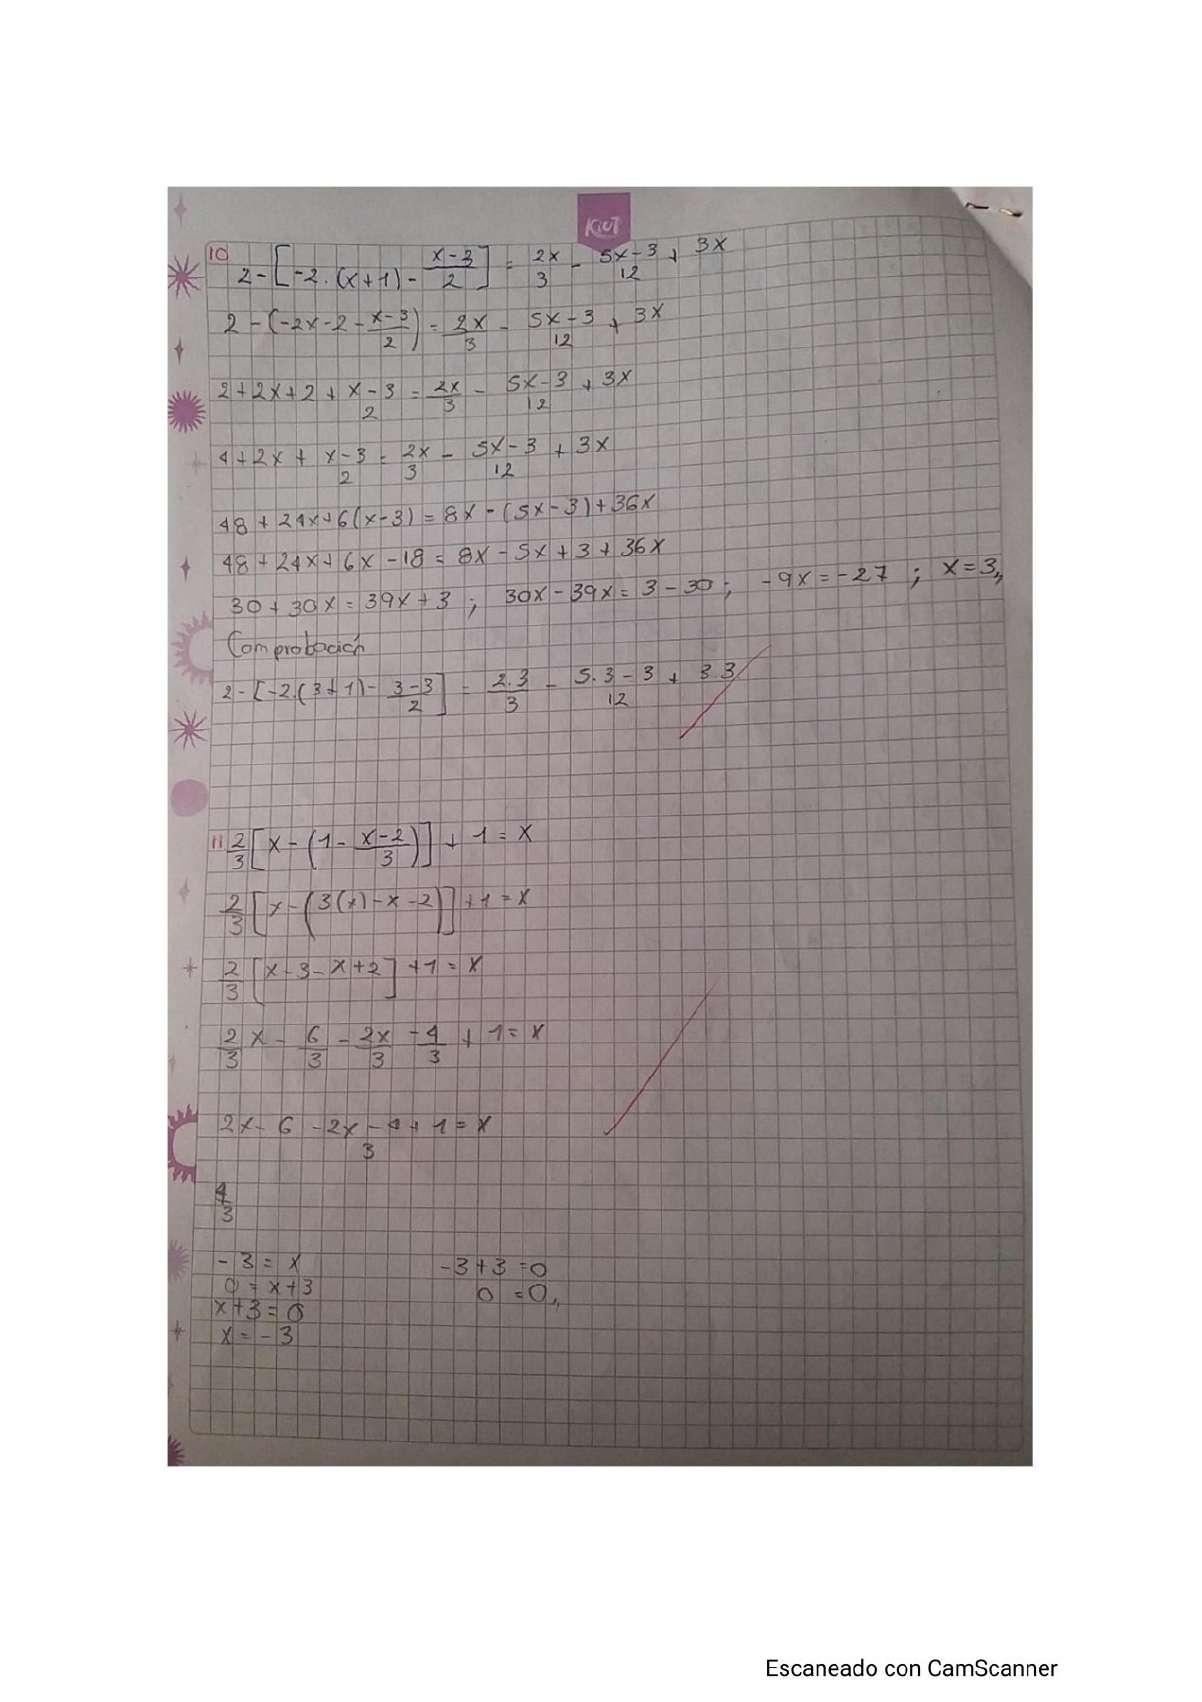 KIUT
10
2 - [-2.(x+1) - (x-3)/2] = 2x/3 - (5x-3)/12 + 3x
2 - (-2x - 2 - (x-3)/2) = 2x/3 - (5x-3)/12 + 3x
2 + 2x + 2 + (x-3)/2 = 2x/3 - (5x-3)/12 + 3x
4 + 2x + (x-3)/2 = 2x/3 - (5x-3)/12 + 3x
48 + 24x + 6(x-3) = 8x - (5x-3) + 36x
48 + 24x + 6x - 18 = 8x - 5x + 3 + 36x
30 + 30x = 39x + 3 ; 30x - 39x = 3 - 30 ; -9x = -27 ; x = 3,,
Comprobación
2 - [-2.(3+1) - (3-3)/2] = 2.3/3 - (5.3-3)/12 + 3.3
11 2/3 [x - (1 - (x-2)/3)] + 1 = x
2/3 [x - (3(x) - x - 2)] + 1 = x
2/3 [x - 3 - x + 2] + 1 = x
2/3 x - 6/3 - 2x/3 - 4/3 + 1 = x
2x - 6 - 2x - 4 + 1 = x
3
4/3
-3 = x -3 + 3 = 0
0 = x + 3 0 = 0,,
x + 3 = 0
x = -3
Escaneado con CamScanner